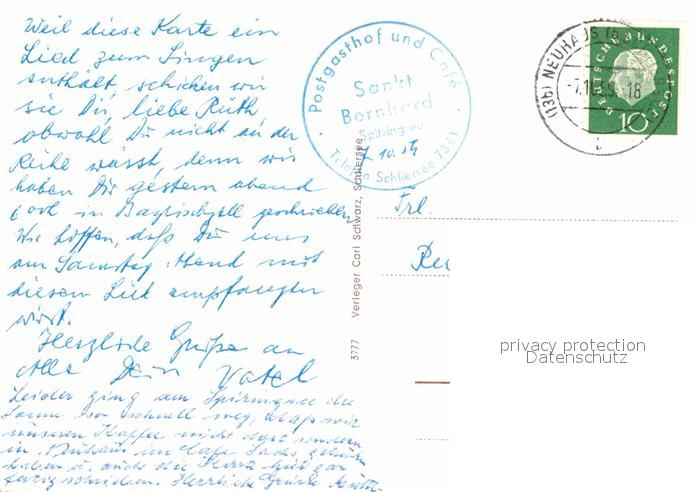 Weil diese Karte ein
Lied zum Singen
enthält, schicken wir
sie Dir, liebe Ruth,
obwohl Du nicht an der
Reihe wärst, denn wir
haben Dir gestern abend
doch in Bayrischzell geschrieben
Wir hoffen, daß Du uns
am Samstag Abend mit
diesem Lied empfangen
wirst.
Herzliche Grüße an
Alle Dein Vati
Leider ging am Spitzingsee die
Sonne so schnell weg, daß wir
unseren Kaffee nicht dort sondern
in Neuhaus im Cafe
haben u. auch die Karte hier
fertig schreiben. Herzliche Grüße Mutti
Postgasthof und Café
Sankt
Bernhard
Spitzingsee
Telefon Schliersee 7361
7.10.59
(13b) NEUHAUS
-7.10.59.-18
b
DEUTSCHE BUNDESPOST
10
Frl.
3777 Verleger Carl Schwarz, Schliersee
privacy protection
Datenschutz